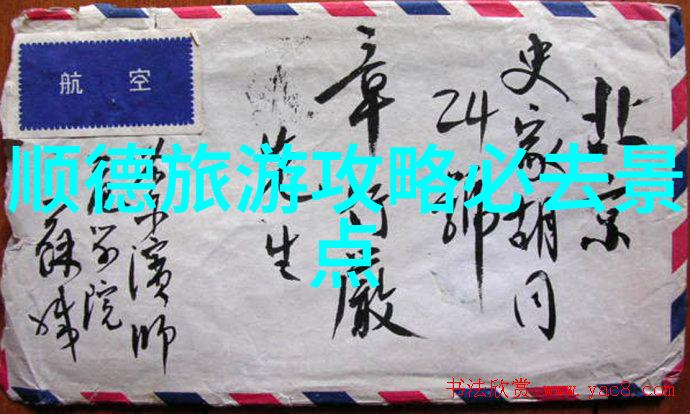 航 空
顺德旅游攻略必去景
点
北京
史家胡同
24號
章行嚴
生
濱师
学院
书法欣赏 www.yac8.com